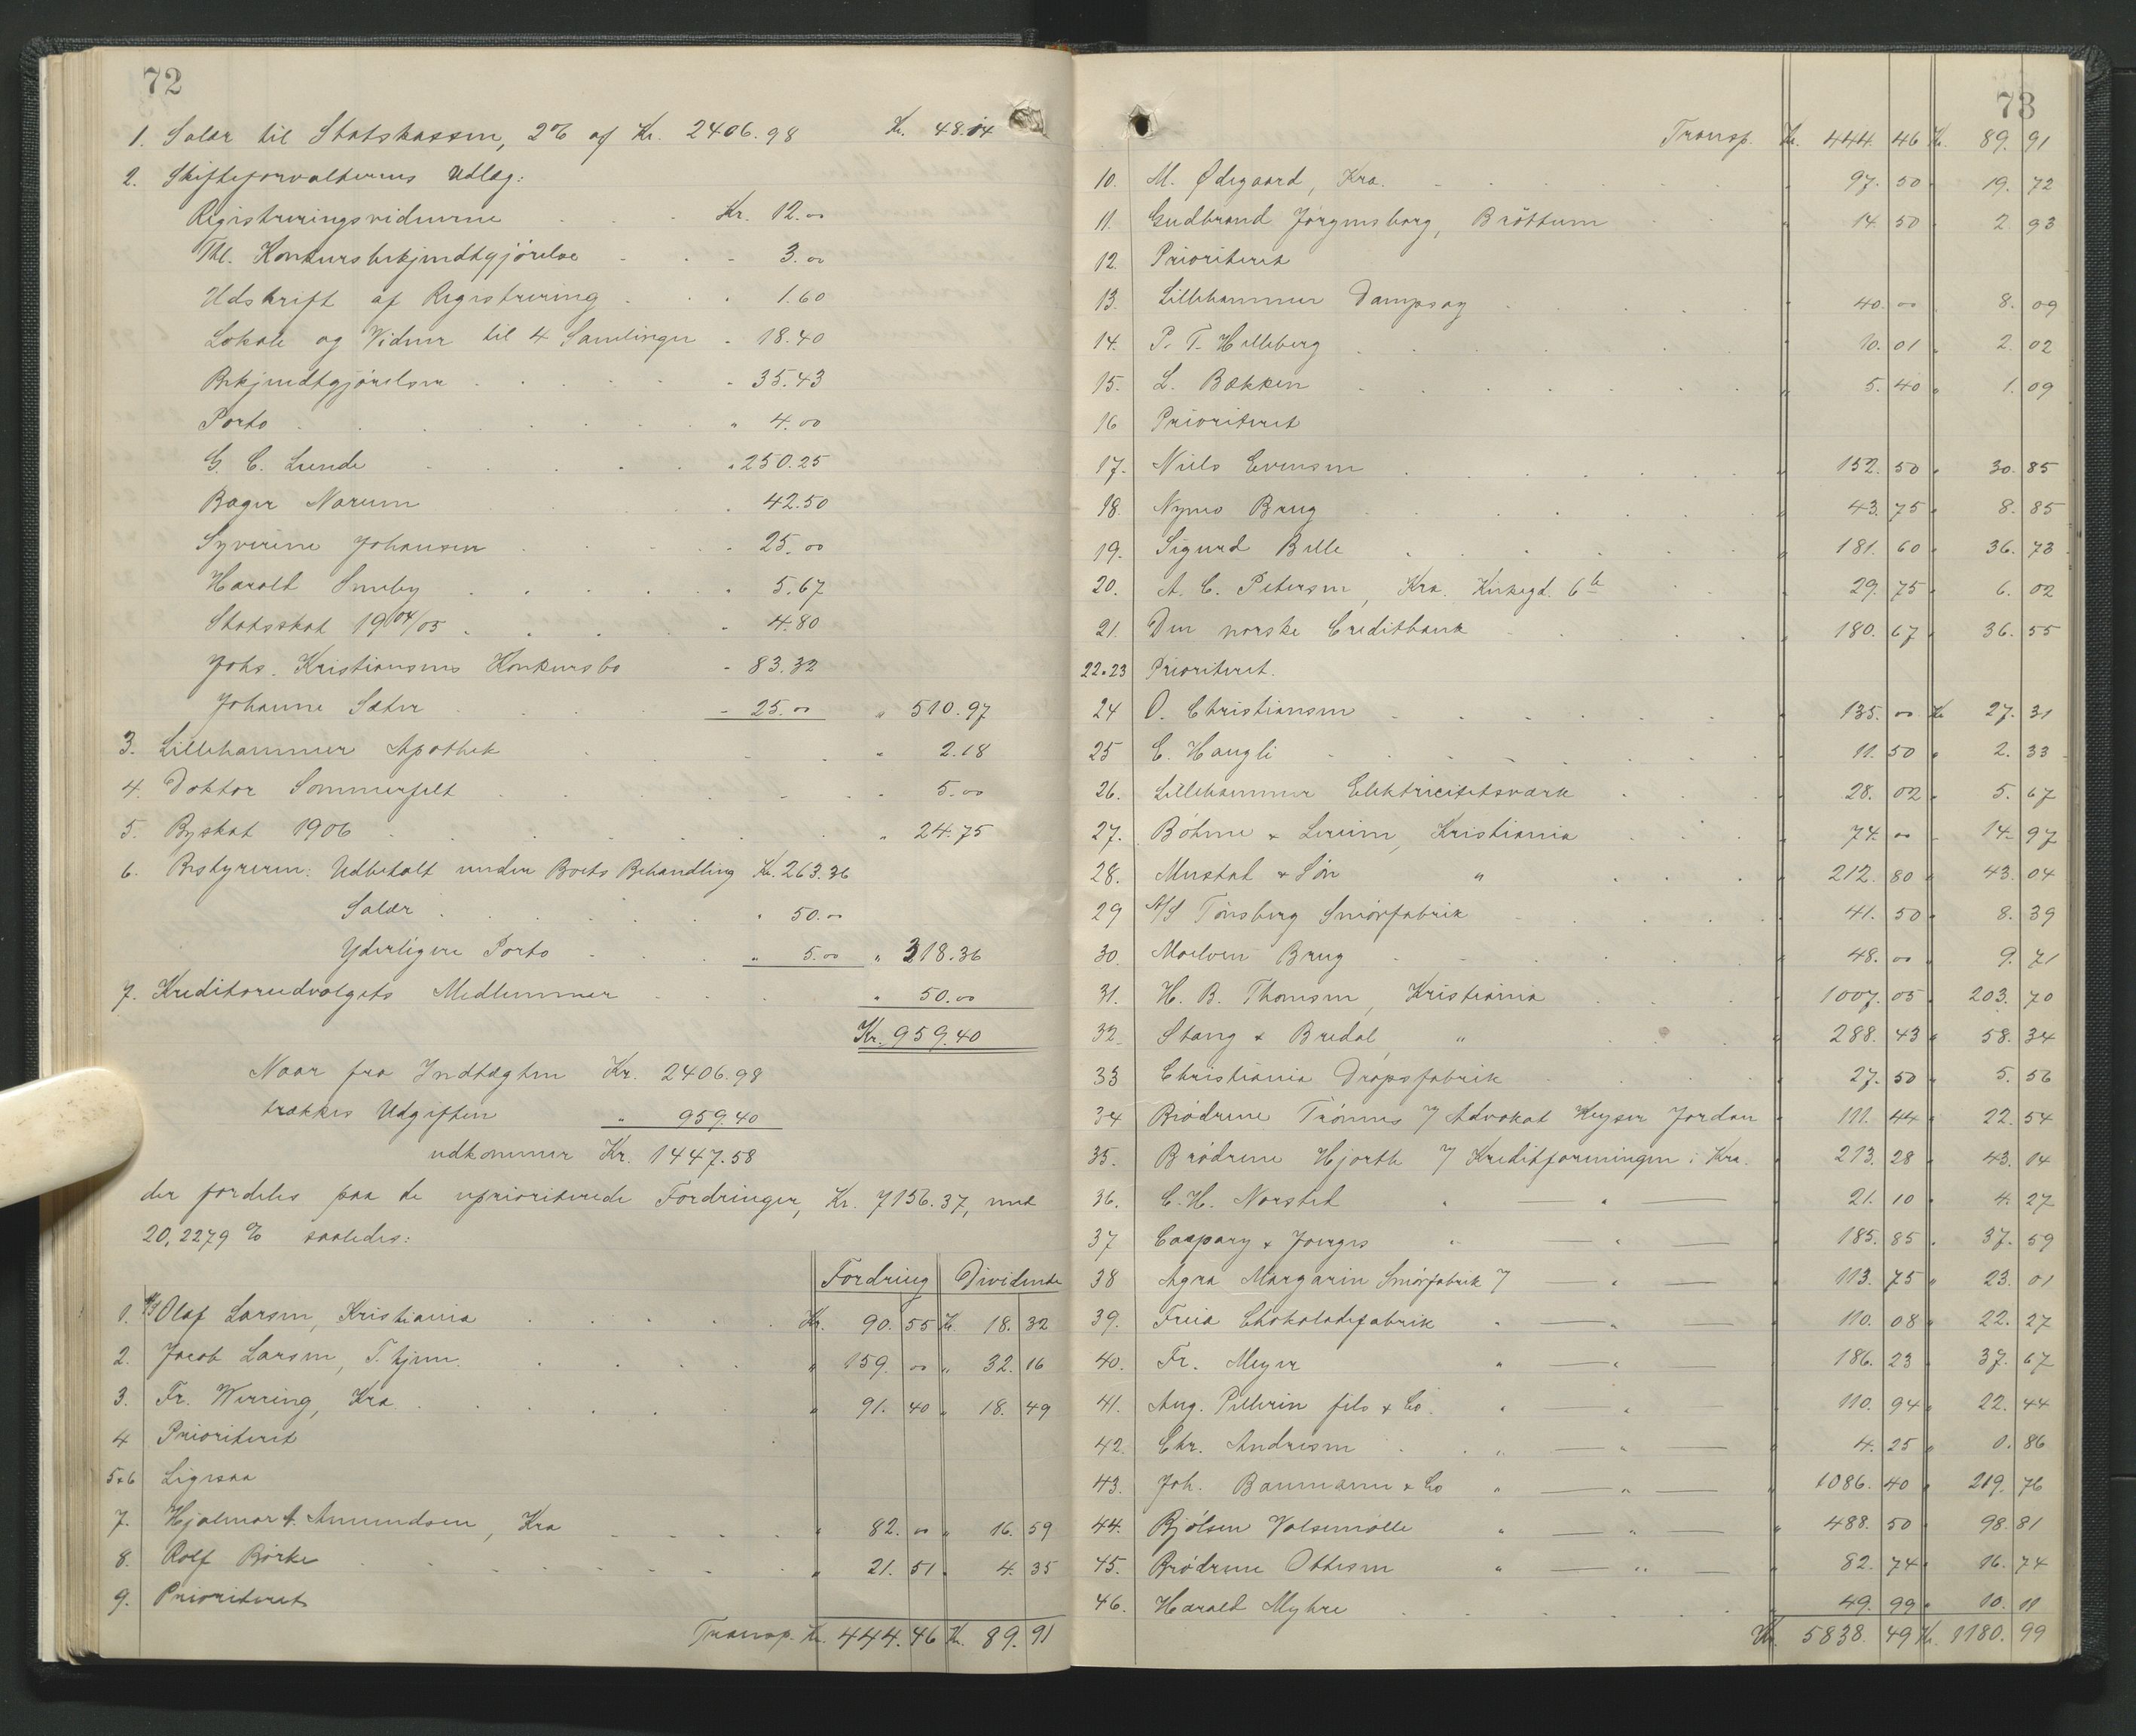 72
1. Salær til Statskassen, 2% af Kr. 2406.98 Kr. 48.14
2. Skifteforvalterens Udlæg:
Registreringsvidnerne Kr. 12.00
Thl. Konkursbekjendtgjörelse - 3.00
Udskrift af Registrering " 1.60
Lokale og Vidner til 4 Samlinger - 18.40
Bekjendtgjörelser - 35.43
Porto " 4.00
G. C. Lunde " 250.25
Bager Narum " 42.50
Syverine Johansen - 25.00
Harald Smeby " 5.67
Statsskat 1904/05 - 4.80
Johs. Kristiansens Konkursbo - 83.32
Johanne Sæter - 25.00 " 510.97
3. Lillehammer Apothek " 2.18
4. Doktor Sommerfelt " 5.00
5. Byskat 1906 " 24.75
6. Bestyreren: Udbetalt under Boets Behandling Kr. 263.36
Salær " 50.00
Yderligere Porto " 5.00 " 318.36
7. Kreditorudvalgets Medlemmer " 50.00
Kr. 959.40
Naar fra Indtægten Kr. 2406.98
trækkes Udgiften " 959.40
udkommer Kr. 1447.58
der fordeles paa de uprioriterede Fordringer, Kr. 7156.37, med
20,2279 % saaledes:
Fordring Dividende
1. A/S Olaf Larsen, Kristiania Kr. 90.55 Kr. 18.32
2. Jacob Larsen, T.hjem. " 159.00 " 32.16
3. Fr. Werring, Kra. " 91.40 " 18.49
4 Prioriteret
5&6 Ligesaa
7. Hjalmar A. Amundsen, Kra " 82.00 " 16.59
8. Rolf Börke " 21.51 " 4.35
9. Prioriteret
Transp. Kr. 444.46 Kr. 89.91
73
Transp. Kr. 444.46 Kr. 89.91
10. M. Ødegaard, Kra. 97.50 " 19.72
11. Gudbrand Jörgensborg, Bröttum " 14.50 " 2.93
12. Prioriteret
13. Lillehammer Dampsag " 40.00 8.09
14. P. T. Helleberg " 10.01 " 2.02
15. L. Bækken " 5.40 " 1.09
16 Prioriteret
17. Niels Evensen " 152.50 " 30.85
18. Nymo Brug " 43.75 " 8.85
19. Sigurd Bille " 181.60 " 36.73
20. A. C. Petersen, Kra. Kirkegd. 6b " 29.75 " 6.02
21. Den norske Creditbank " 180.67 " 36.55
22&23 Prioriteret.
24 O. Christiansen " 135.00 Kr. 27.31
25 E. Haugli " 11.50 " 2.33
26. Lillehammer Elektricitetsværk " 28.02 " 5.67
27. Böhme & Lerum, Kristiania " 74.00 - 14.97
28. Mustad & Sön " " 212.80 " 43.04
29 A/S Tönsberg Smörfabrik " 41.50 " 8.39
30. Moelven Brug " 48.00 " 9.71
31. H. B. Thomsen, Kristiania " 1007.05 " 203.70
32. Stang & Bredal, " " 288.43 " 58.34
33 Christiania Dropsfabrik " 27.50 " 5.56
34 Brödrene Trönnes v/ Advokat Keyser Jordan " 111.44 " 22.54
35. Brödrene Hjorth v/ Kreditforeningen i Kra. " 213.28 " 43.14
36. C. H. Norsted " — " — " 21.10 " 4.27
37 Caspary & Joerges " — " — " 185.85 " 37.59
38 Agra Margarin Smörfabrik v/ — " — " 113.75 " 23.01
39. Freia Chokoladefabrik " — " — " 110.08 " 22.27
40. Fr. Meyer " — " — " 186.23 " 37.67
41. Aug. Pellerin fils & Co. " — " — " 110.94 " 22.44
42. Chr. Andresen " — " — " 4.25 " 0.86
43. Joh. Baumann & Co " — " — " 1086.40 " 219.76
44. Bjölsen Valsemölle " — " — " 488.50 " 98.81
45. Brödrene Ottesen " — " — " 82.74 " 16.74
46. Harald Myhre " 49.99 " 10.11
Kr. 5838.49 Kr. 1180.99